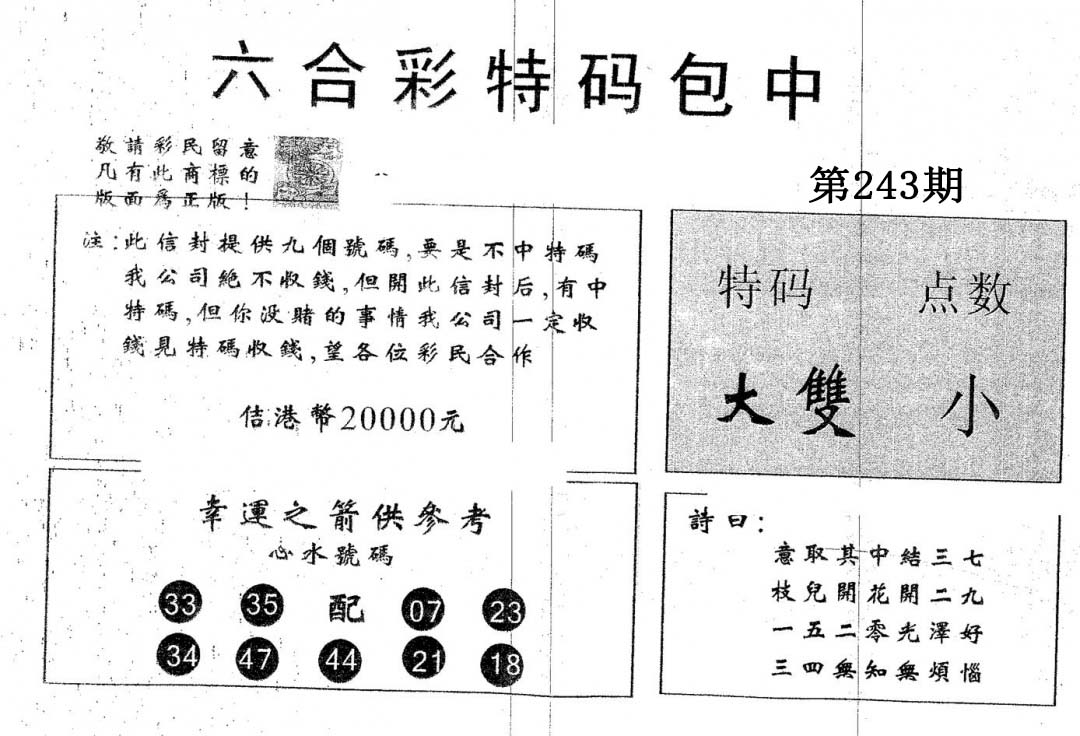 六合彩特码包中
敬請彩民留意
凡有此商標的
版面爲正版！
第243期
注:此信封提供九個號碼,要是不中特碼
我公司絶不收錢,但開此信封后,有中
特碼,但你没賭的事情我公司一定收
錢見特碼收錢,望各位彩民合作
佶港幣20000元
特码 点数
大雙 小
幸運之箭供參考
心水號碼
33 35 配 07 23
34 47 44 21 18
詩曰:
意取其中結三七
枝兒開花開二九
一五二零光澤好
三四無知無煩惱